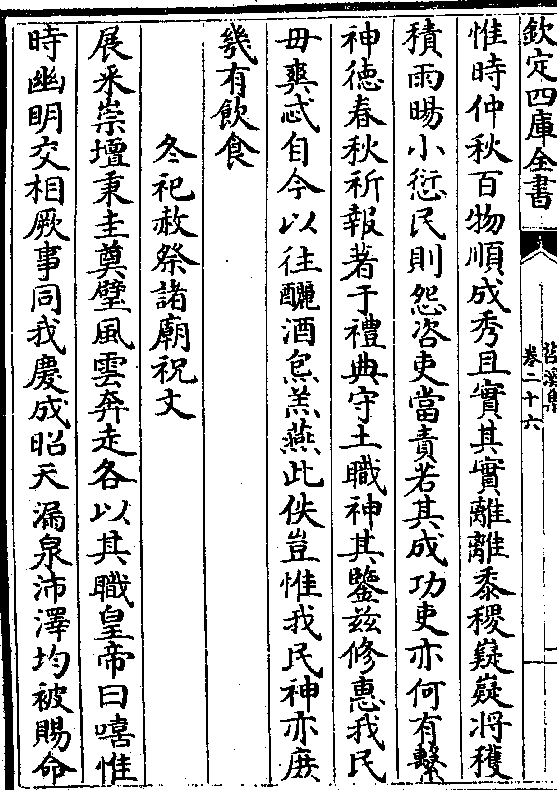 欽定四庫全書
苕溪集
卷二十六
惟時仲秋百物順成秀且實其實離離黍稷嶷嶷將穫
積雨暘小愆民則怨咨吏當責若其成功吏亦何有繫
神徳春秋祈報著于禮典守土職神其鑒兹修惠我民
毋爽忒自今以往釃酒炰羔燕此佚豈惟我民神亦庻
幾有飲食
冬祀赦祭諸廟祝文
展采崇壇秉圭奠璧風雲奔走各以其職皇帝曰嘻惟
時幽明交相厥事同我慶成昭天漏泉沛澤均被賜命